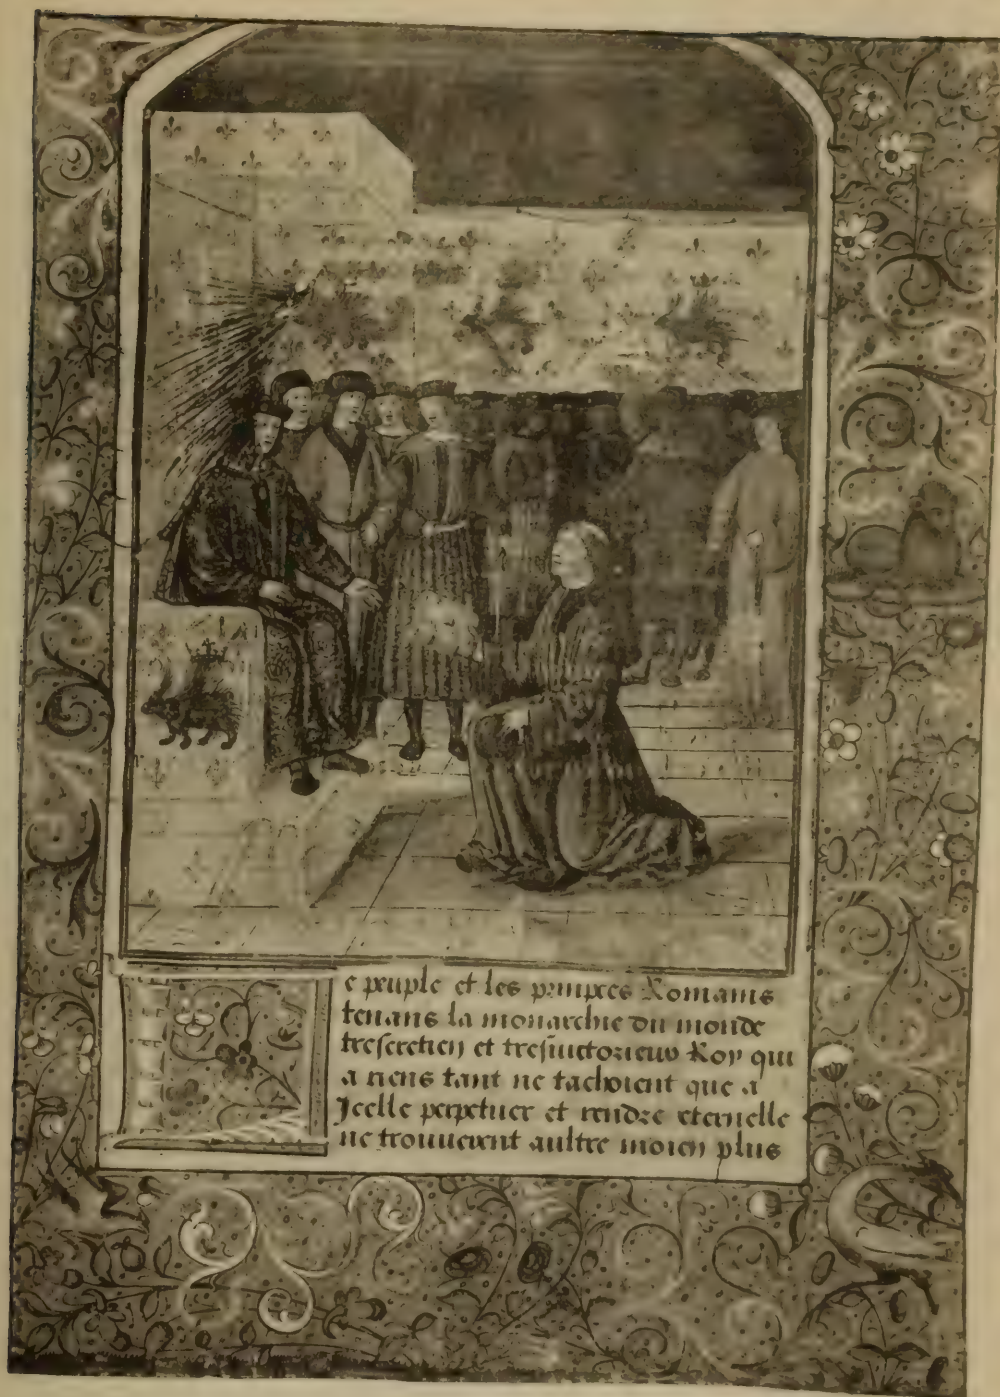 e peuple et les princes Romains
tenans la monarchie du monde
trescretien et tresvictorieux Roy qui
a riens tant ne tachoient que a
Jcelle perpetuer et rendre eternelle
ne trouuerent aultre moien plus